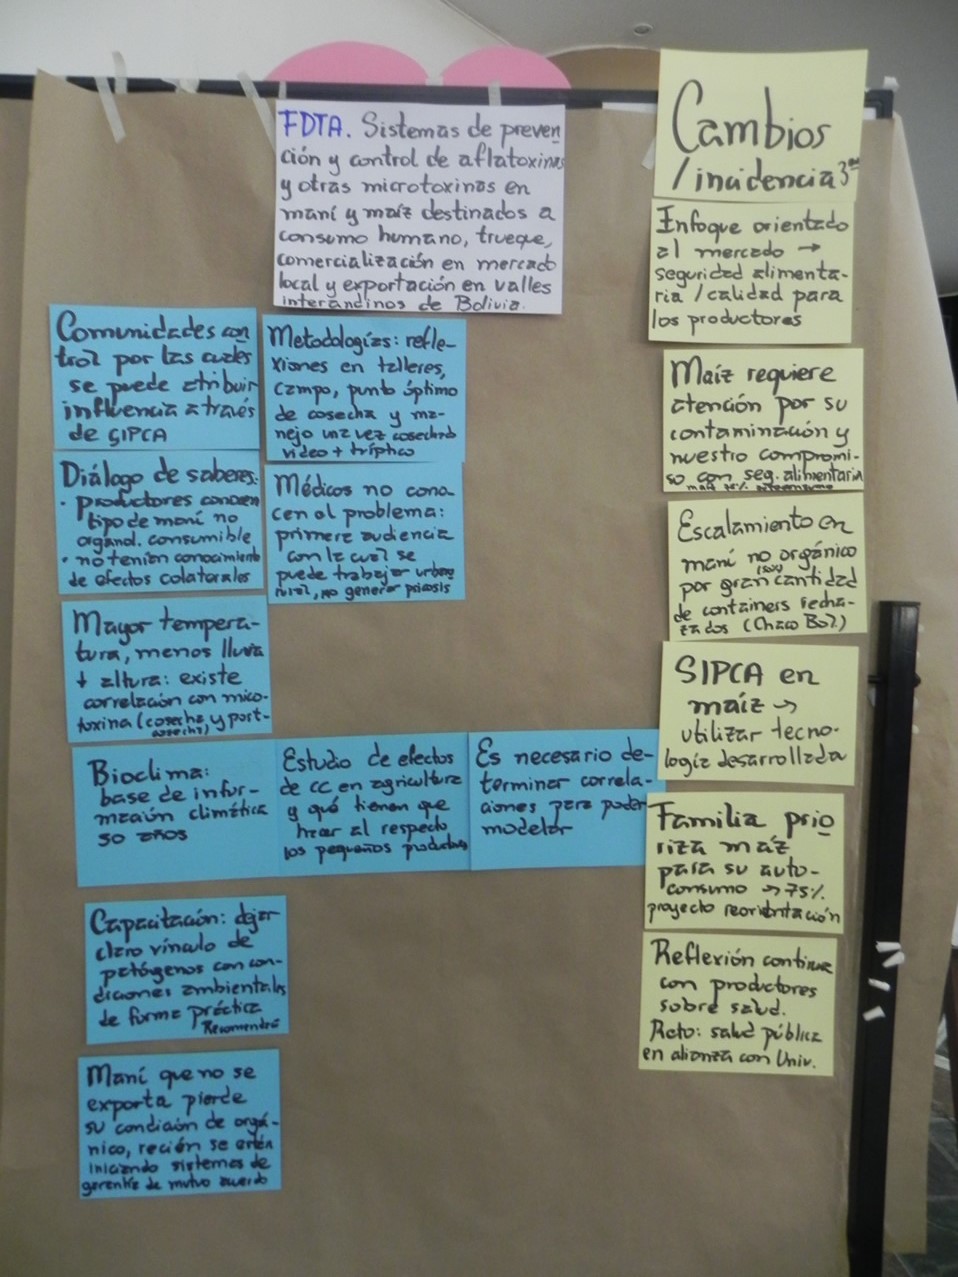 FDTA. Sistemas de preven
ción y control de aflatoxinas
y otras microtoxinas en
maní y maíz destinados a
consumo humano, trueque,
comercialización en mercado
local y exportación en valles
interandinos de Bolivia.
Comunidades con
trol por las cuales
se puede atribuir
influencia a través
de SIPCA
Diálogo de saberes:
· productores conocen
tipo de maní no
organol. consumible
· no tenían conocimiento
de efectos colaterales
Mayor tempera-
tura, menos lluvia
+ altura: existe
correlación con mico-
toxina (cosecha y post-
cosecha)
Bioclima:
base de infor-
mación climática
50 años
Capacitación: dejar
claro vínculo de
patógenos con con-
diciones ambientales
de forma práctica
Maní que no se
exporta pierde
su condición de orgá-
nico, recién se están
iniciando sistemas de
garantía de mutuo acuerdo
Metodologías: refle-
xiones en talleres,
campo, punto óptimo
de cosecha y ma-
nejo una vez cosechado
video + tríptico
Médicos no cono
cen el problema:
primera audiencia
con la cual se
puede trabajar urbano
rural, no generar psicosis
Estudio de efectos
de CC en agricultura
y qué tienen que
hacer al respecto
los pequeños productores
Es necesario de-
terminar correla-
ciones para poder
modelar
Cambios
/incidencia
Enfoque orientado
al mercado →
seguridad alimenta-
ria / calidad para
los productores
Maíz requiere
atención por su
contaminación y
nuestro compromi-
so con seg. alimentaria
Escalamiento en
maní no orgánico
por gran cantidad
de containers recha-
zados (Chaco Bol)
SIPCA en
maíz →
utilizar tecno-
logía desarrollada
Familia prio
riza maíz
para su auto-
consumo → 75%
proyecto reorientación
Reflexión continua
con productores
sobre salud.
Reto: salud pública
en alianza con Univ.